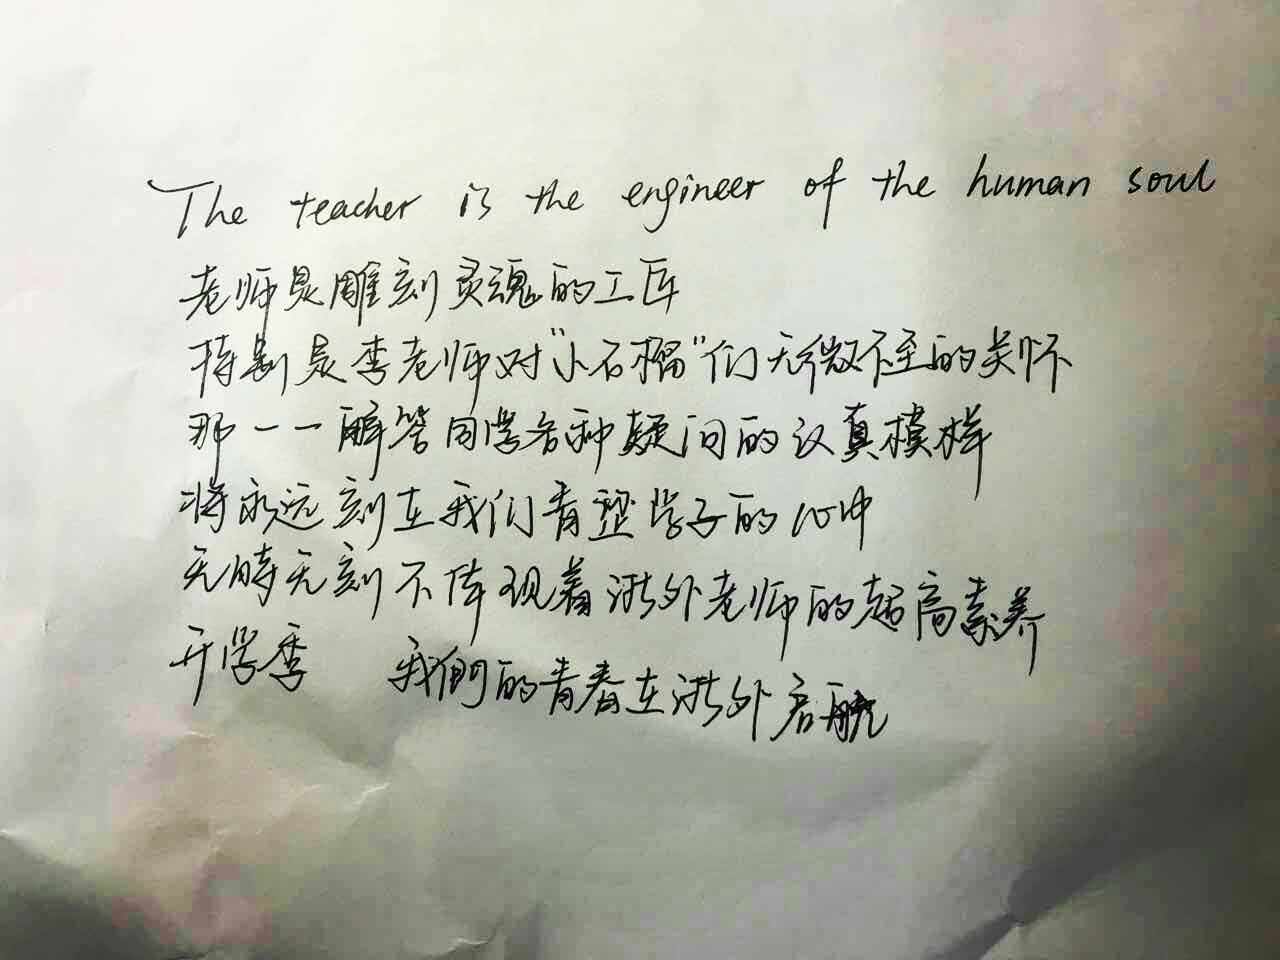 The teacher is the engineer of the human soul
老师是雕刻灵魂的工匠
特别是李老师对“小石榴”们无微不至的关怀
那一一解答同学各种疑问的认真模样
将永远刻在我们青涩学子的心中
无時无刻不体现着浙外老师的超高素养
开学季 我們的青春在浙外启航